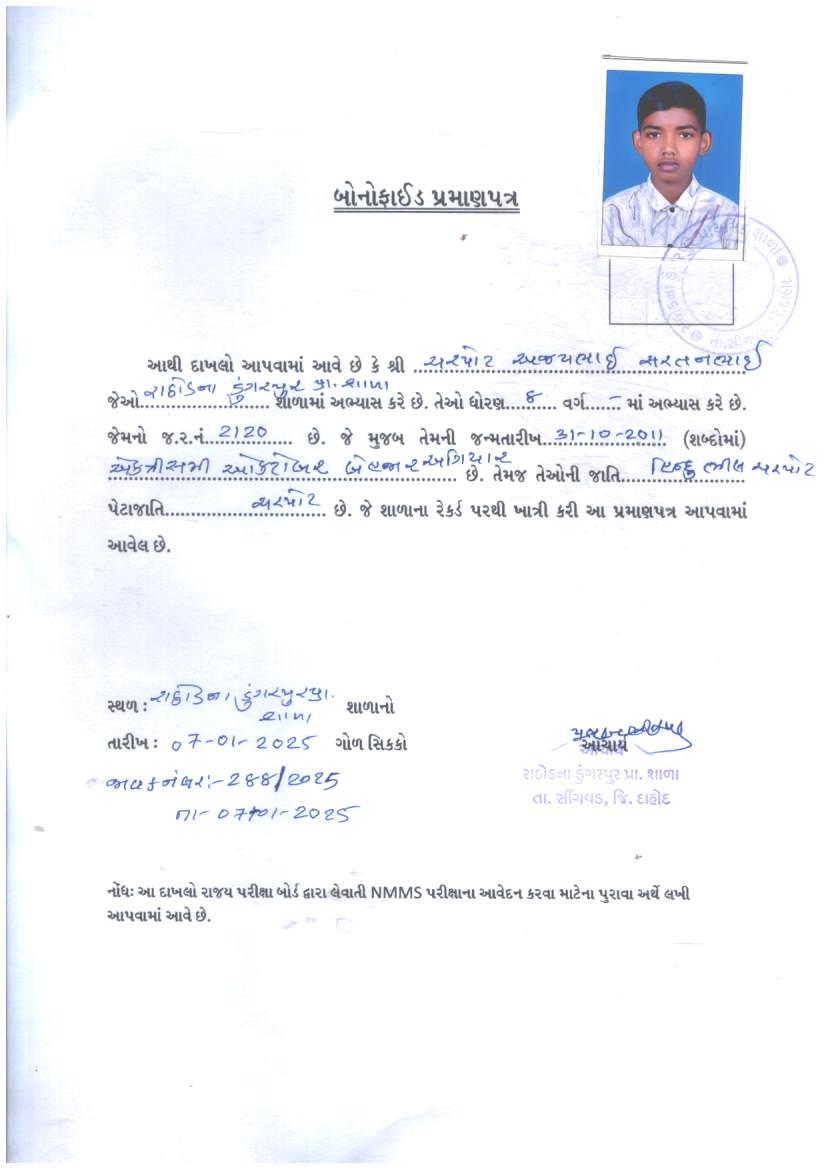 બોનોફાઈડ પ્રમાણપત્ર
આથી દાખલો આપવામાં આવે છે કે શ્રી ચરપોટ અજયભાઈ સરતનભાઈ
જેઓ રાઠોડના ડુંગરપુર પ્રા. શાળા શાળામાં અભ્યાસ કરે છે. તેઓ ધોરણ 8 વર્ગ - માં અભ્યાસ કરે છે.
જેમનો જ.ર.નં. 2120 છે. જે મુજબ તેમની જન્મતારીખ 31-10-2011 (શબ્દોમાં)
એકત્રીસમી ઓક્ટોબર બેહજાર અગિયાર છે. તેમજ તેઓની જાતિ હિન્દુ ભીલ ચરપોટ
પેટાજાતિ ચરપોટ છે. જે શાળાના રેકર્ડ પરથી ખાત્રી કરી આ પ્રમાણપત્ર આપવામાં
આવેલ છે.
સ્થળ : રાઠોડના ડુંગરપુર પ્રા. શાળા શાળાનો
તારીખ : 07-01-2025 ગોળ સિક્કો
આચાર્ય
જાવક નંબર:- 288/2025
તા- 07-01-2025
આચાર્ય
રાઠોડના ડુંગરપુર પ્રા. શાળા
તા. સીંગવડ, જિ. દાહોદ
નોંધઃ આ દાખલો રાજય પરીક્ષા બોર્ડ દ્વારા લેવાતી NMMS પરીક્ષાના આવેદન કરવા માટેના પુરાવા અર્થે લખી
આપવામાં આવે છે.